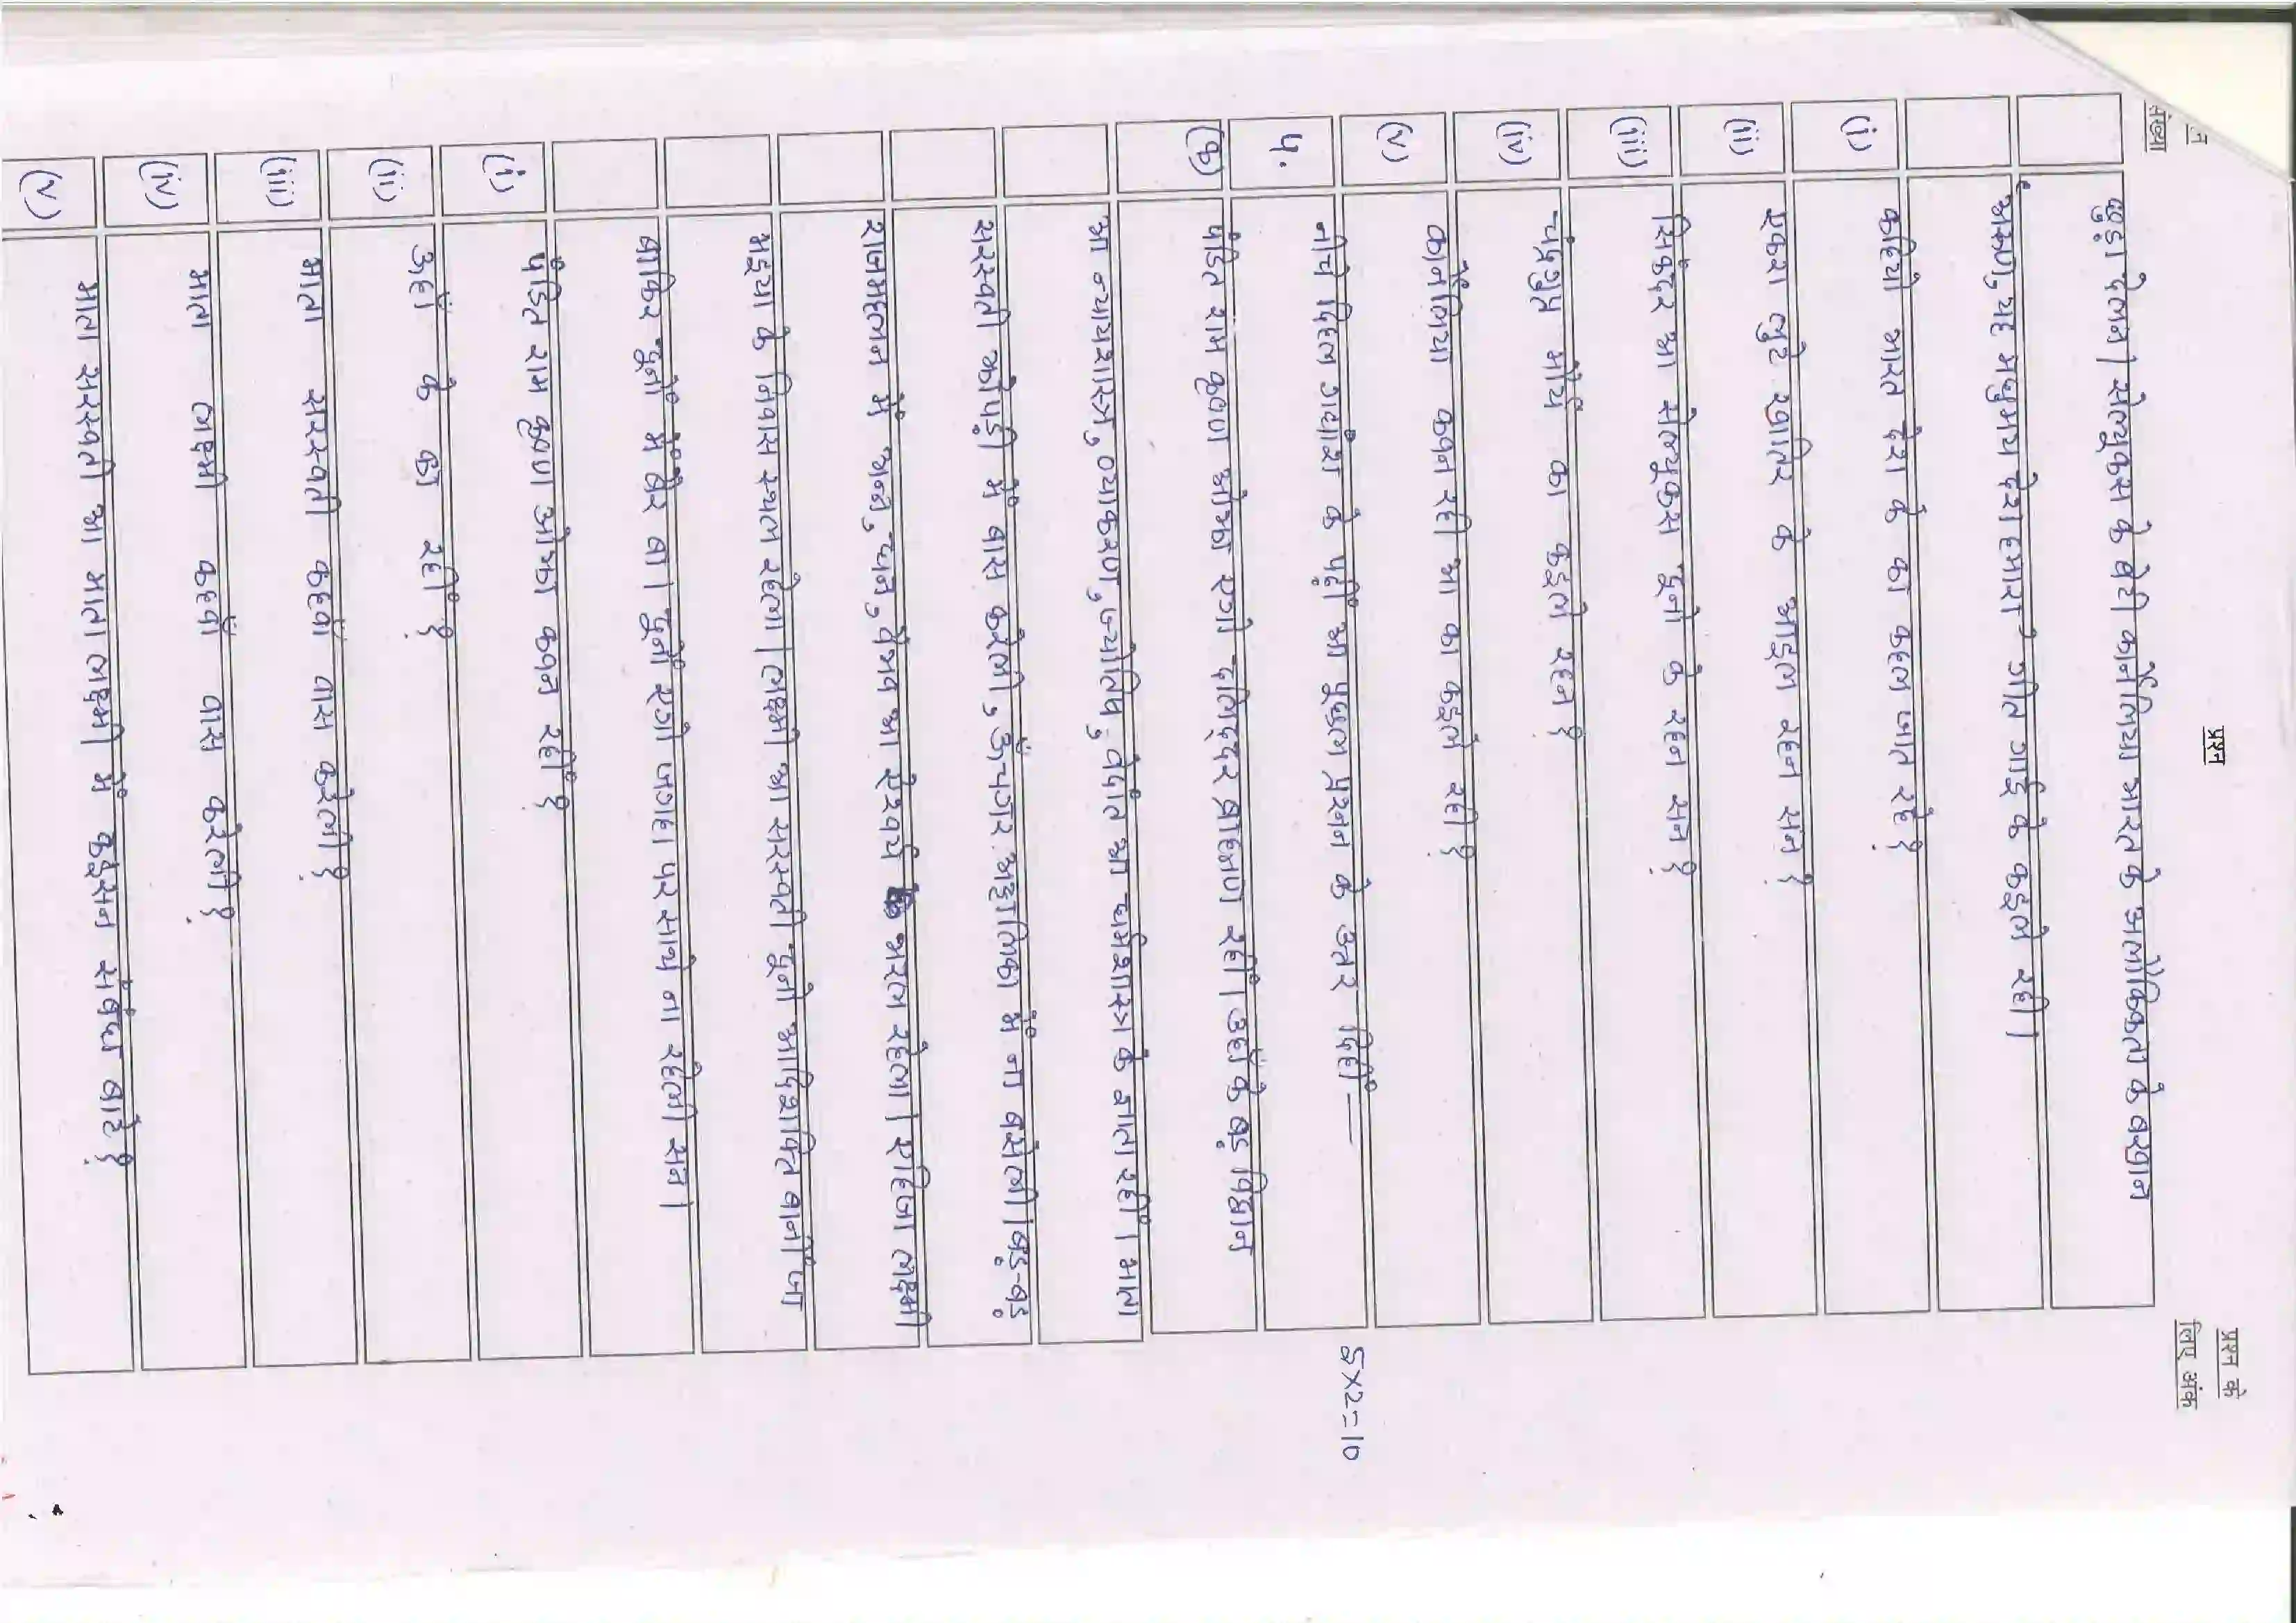 संख्या
प्रश्न
प्रश्न के
लिए अंक
छुड़ा देलस। सेल्यूकस के बेटी कार्नेलिया भारत के अलौकिकता के बखान
'अरूण, यह मधुमय देश हमारा' गीत गाई के कइले रही।
(i) कहियो भारत देश के का कहल जात रहे?
(ii) एकरा लुटे खातिर के आइल रहन सन?
(iii) सिकंदर आ सेल्यूकस दूनो के रहन सन?
(iv) चंद्रगुप्त मौर्य का कइले रहन?
(v) कार्नेलिया कवन रही आ का कइले रही?
५. नीचे दिहल गद्यांश के पढ़ीं आ पूछल प्रश्न के उत्तर दिहीं — 5x2=10
(क) पंडित राम कृष्ण ओझा एगो दलिद्दर ब्राह्मण रहीं। उहाँ के बड़ विद्वान
आ न्यायशास्त्र, व्याकरण, ज्योतिष, वेदांत आ धर्मशास्त्र के ज्ञाता रहीं। माता
सरस्वती झोपड़ी में वास करेली, ऊँचगर अट्टालिका में ना बसेली। बड़-बड़
राजमहलन में अन्न, धन, वैभव आ ऐश्वर्य भरल रहेला। एहिजा लक्ष्मी
मइया के निवास स्थल रहेला। लक्ष्मी आ सरस्वती दूनो आदिशक्ति बानीं जा
बाकिर दूनों में बैर बा। दूनों एगो जगहा पर साथे ना रहेली सन।
(i) पंडित राम कृष्ण ओझा कवन रहीं?
(ii) उहाँ के का रहीं?
(iii) माता सरस्वती कहवाँ वास करेली?
(iv) माता लक्ष्मी कहवाँ वास करेली?
(v) माता सरस्वती आ माता लक्ष्मी में कइसन संबंध बाटे?